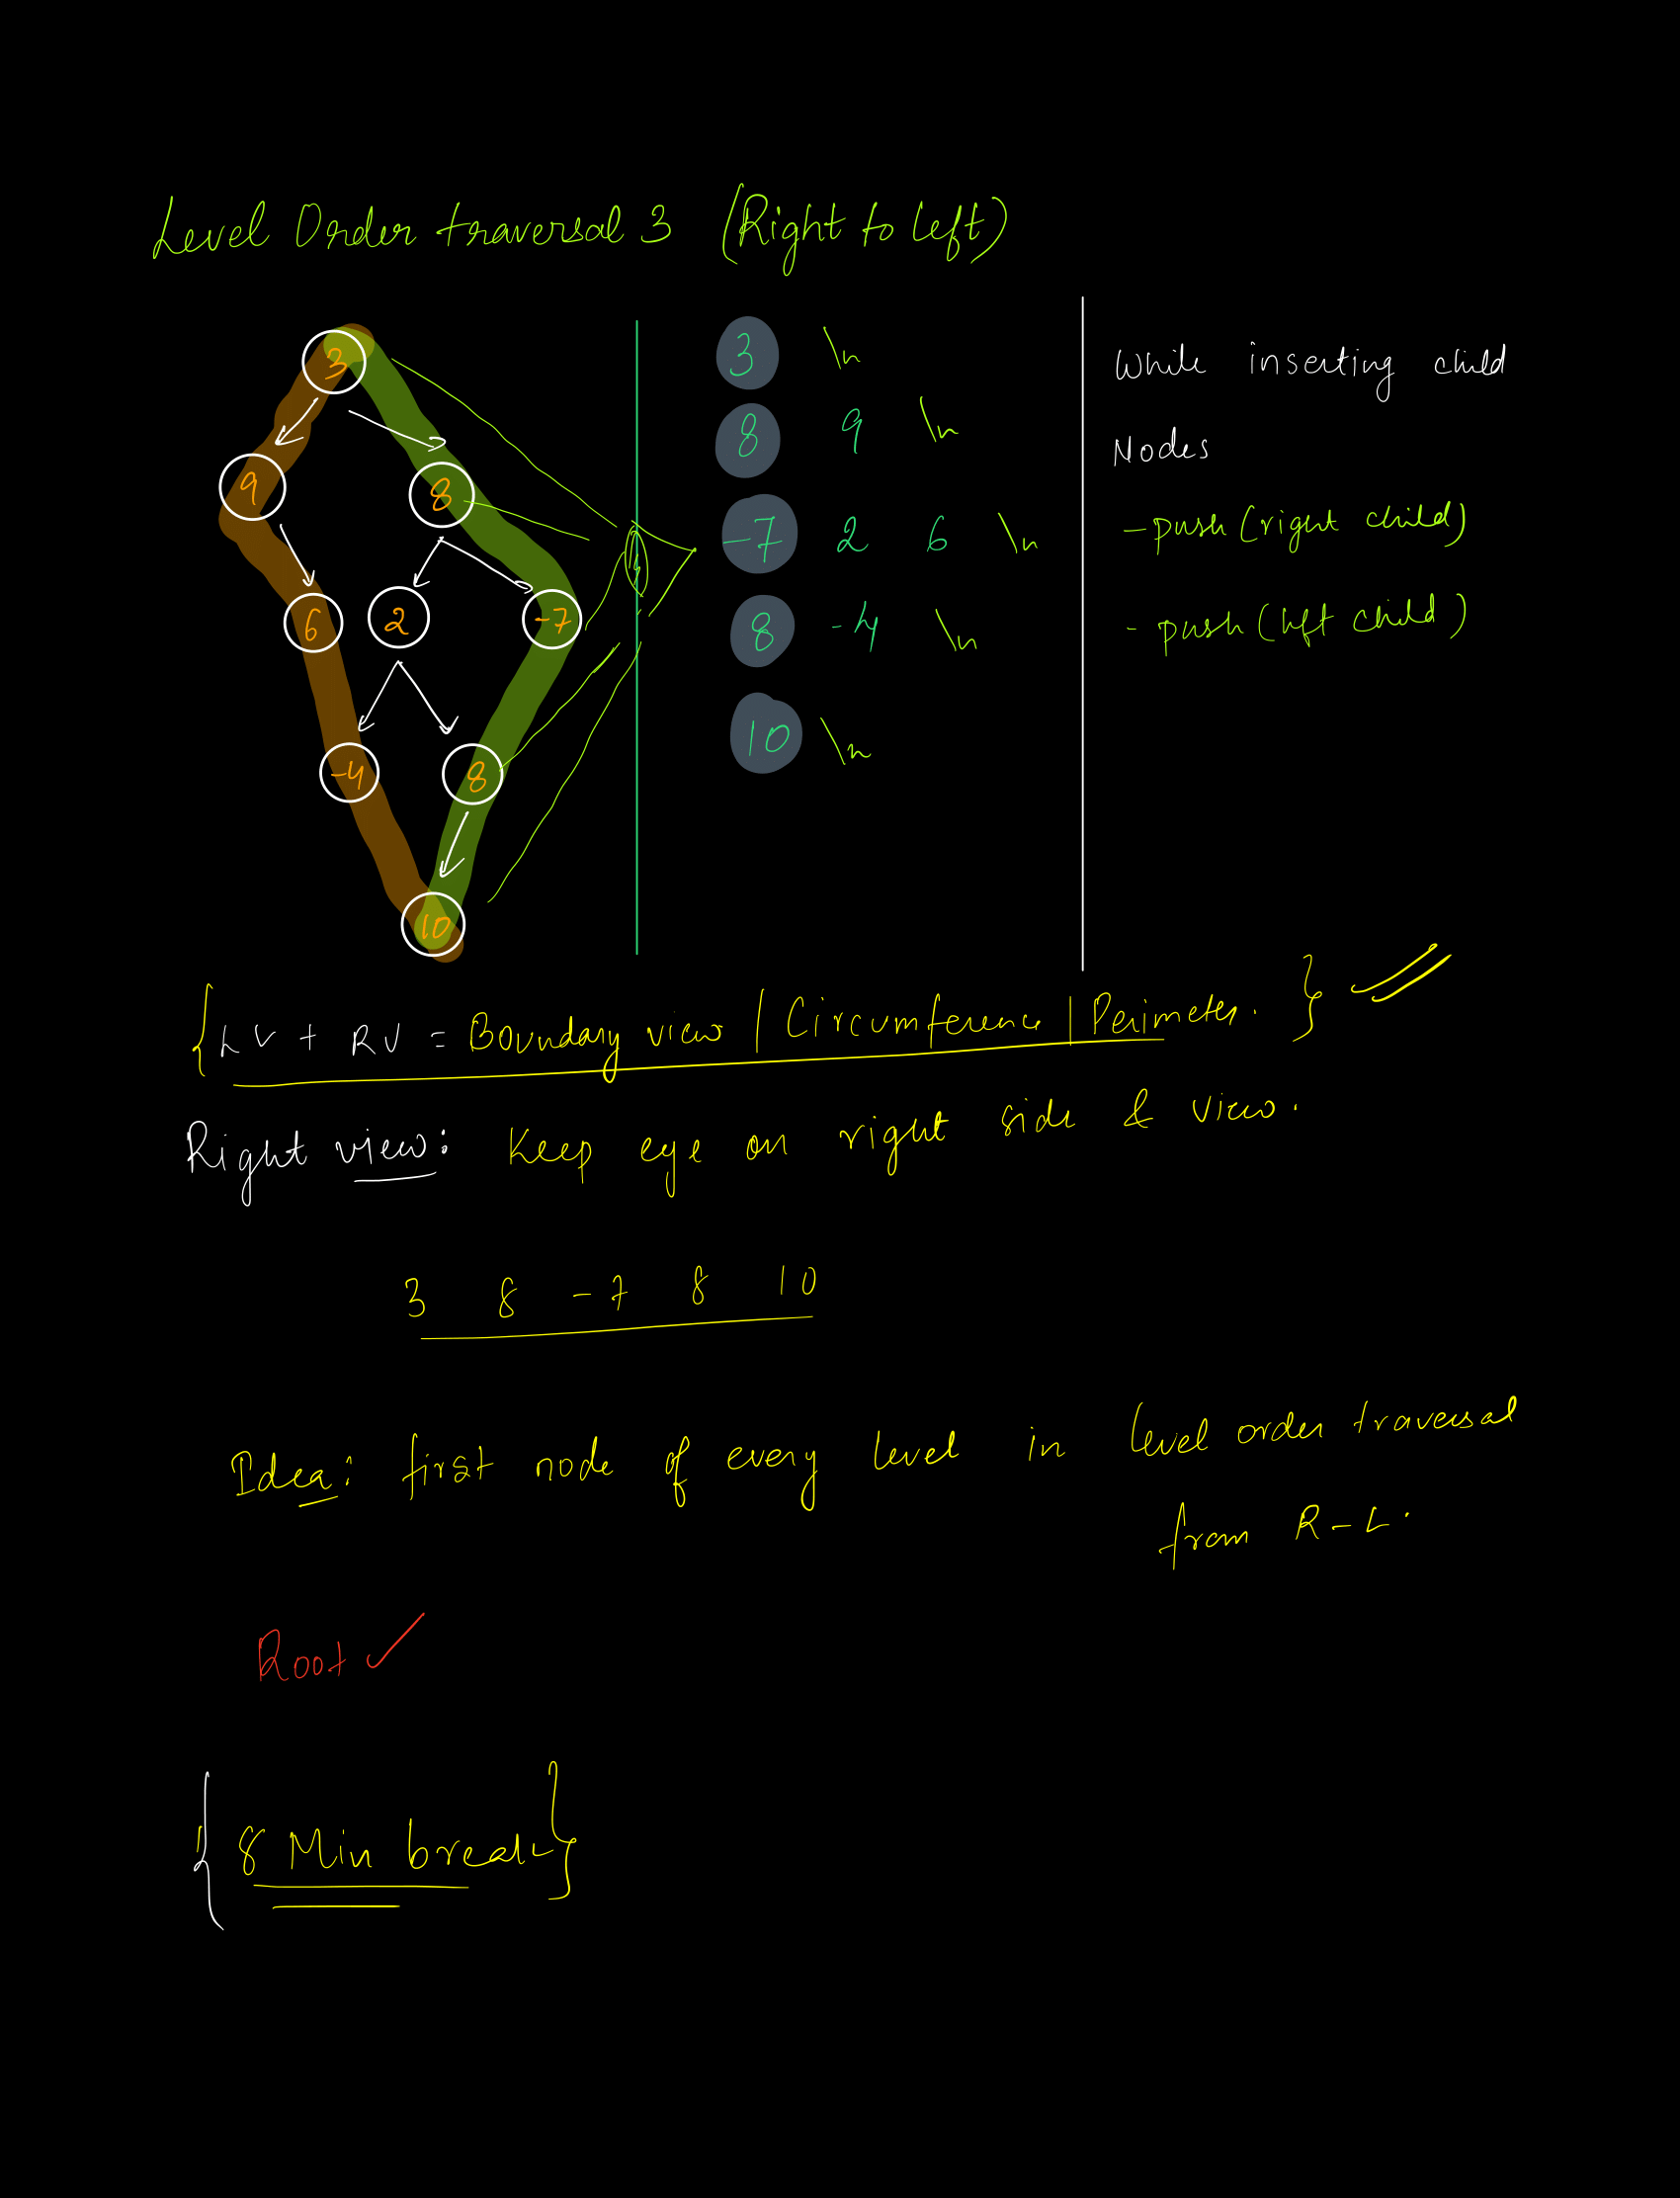 Level Order traversal 3 (Right to left)
3
9 8
6 2 -7
-4 8
10
3 \n
8 9 \n
-7 2 6 \n
8 -4 \n
10 \n
While inserting child
Nodes
- push (right child)
- push (left child)
{ LV + RV = Boundary view | Circumference | Perimeter. }
Right view: Keep eye on right side & view.
3 8 -7 8 10
Idea: first node of every level in level order traversal
from R-L.
Root ✓
{ 8 Min break }